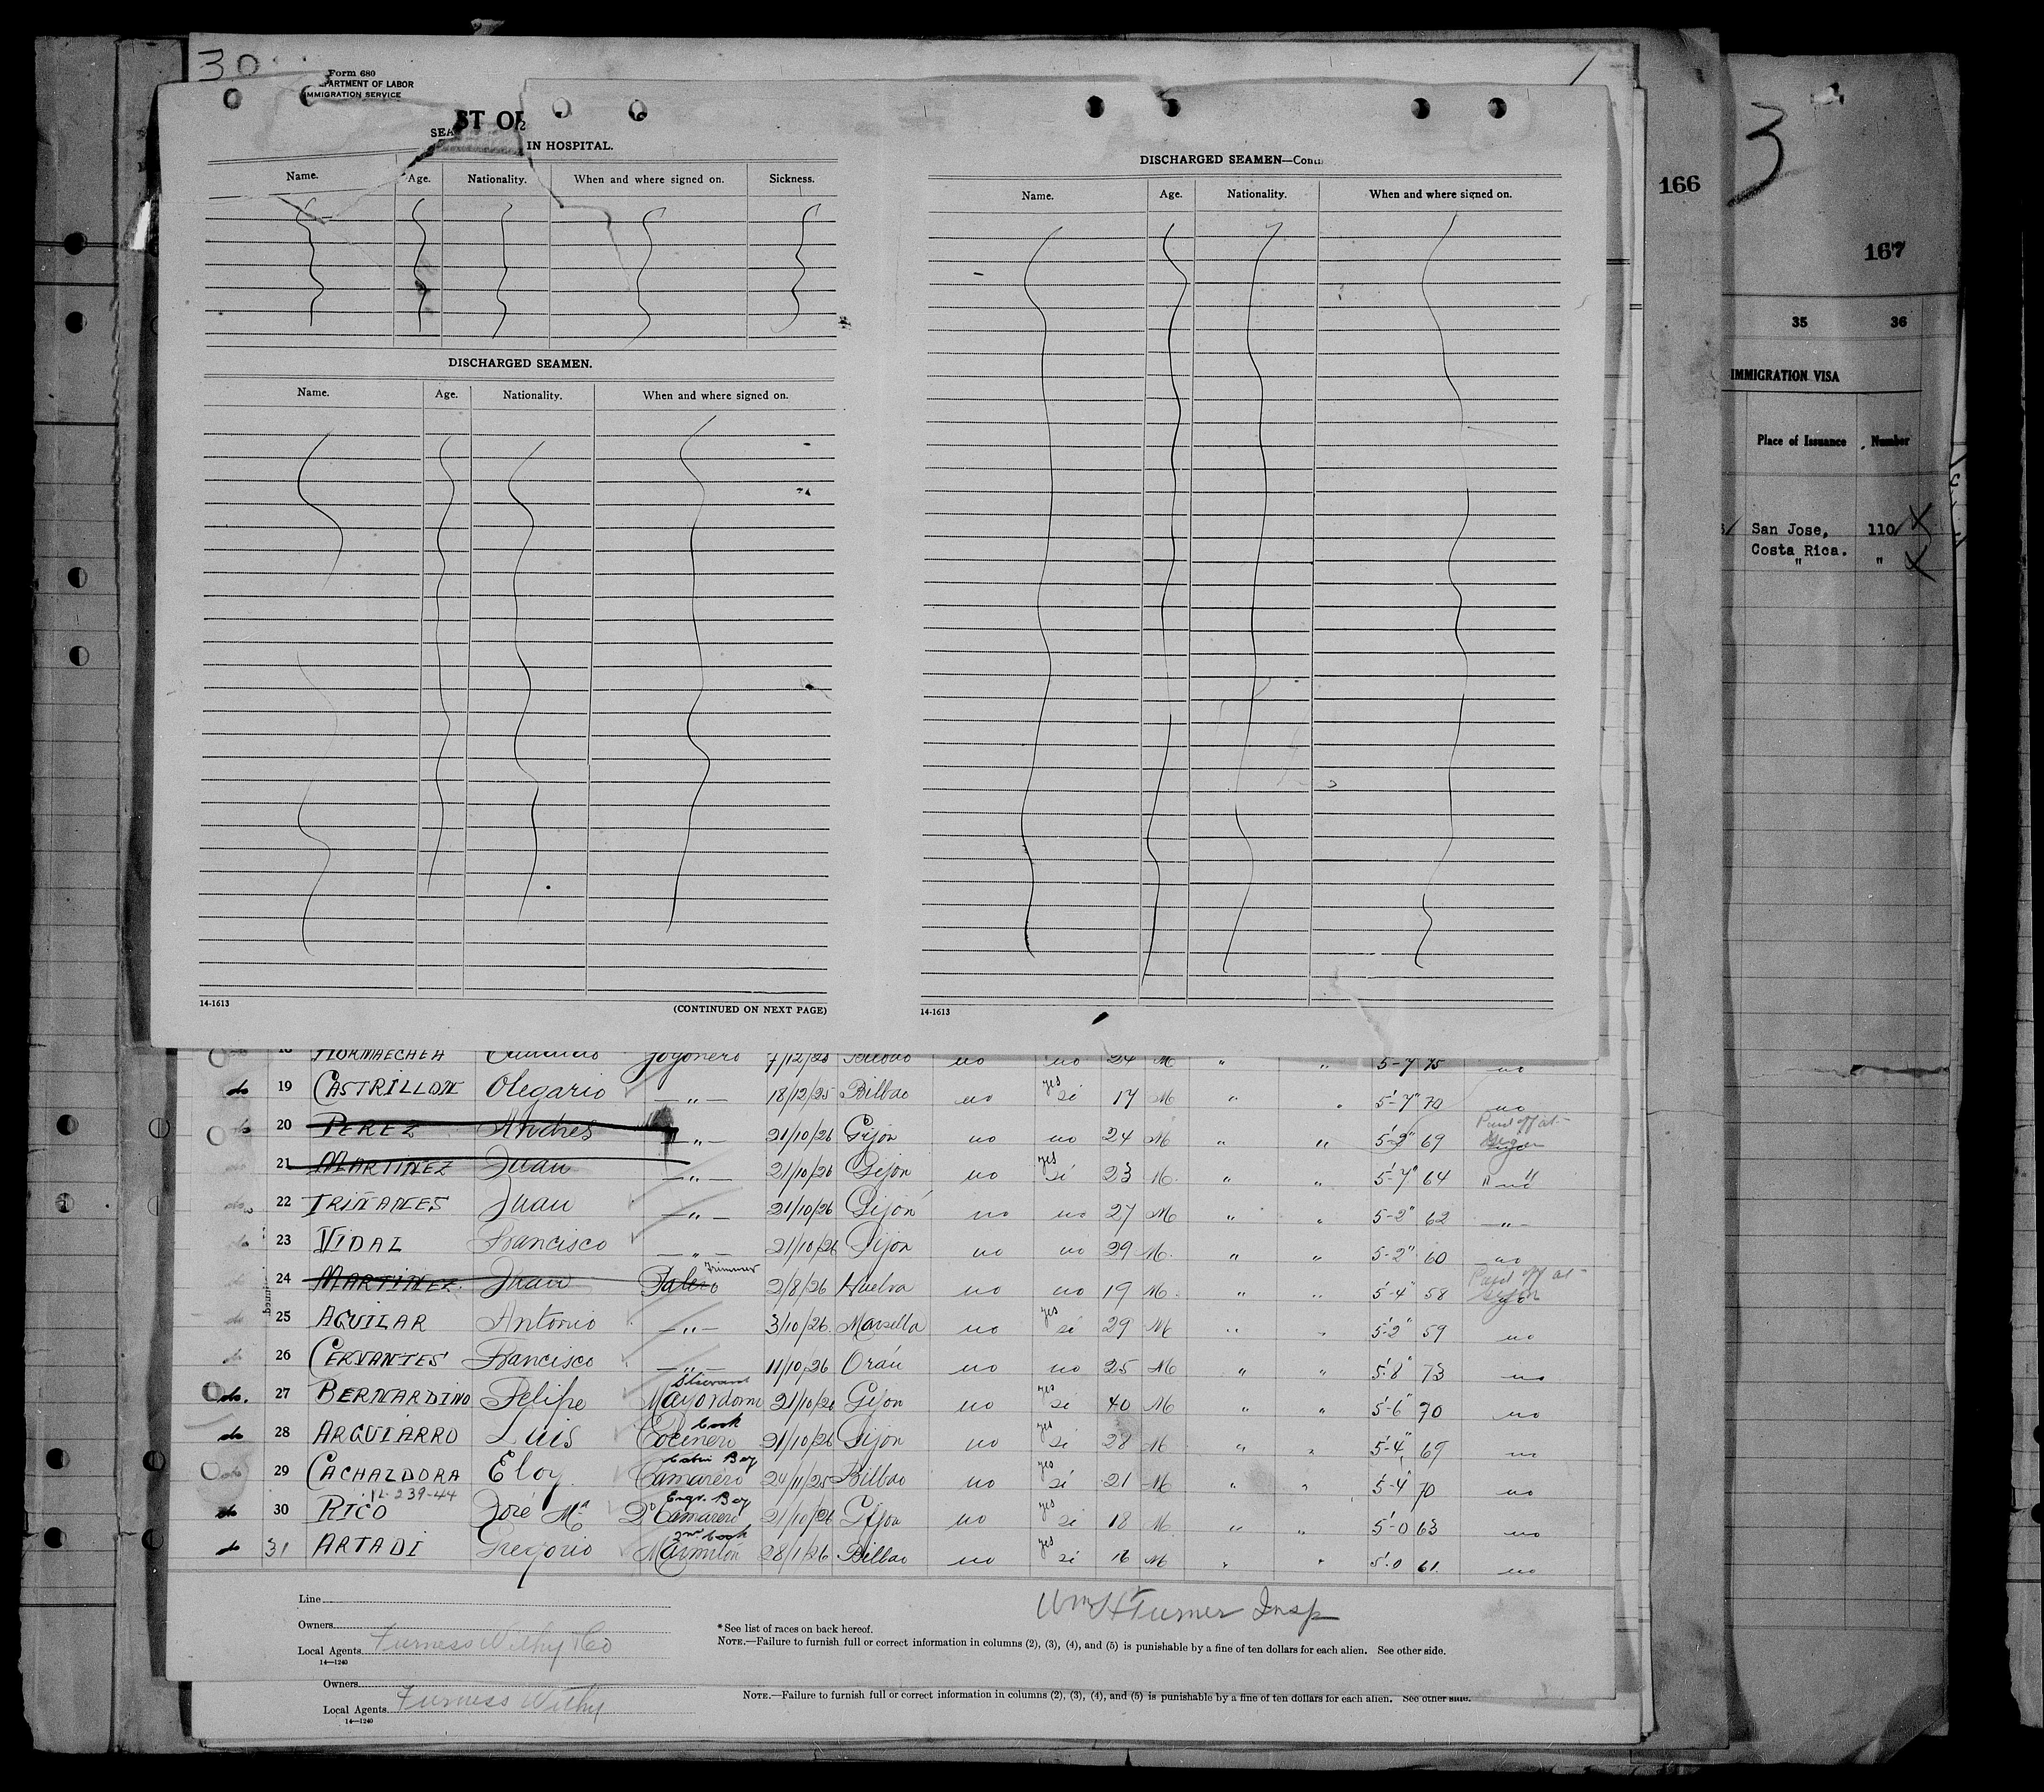 30
Form 680
DEPARTMENT OF LABOR
IMMIGRATION SERVICE
ST OF
SEA
IN HOSPITAL.
Name. Age. Nationality. When and where signed on. Sickness.
DISCHARGED SEAMEN.
Name. Age. Nationality. When and where signed on.
14-1613 (CONTINUED ON NEXT PAGE)
DISCHARGED SEAMEN—Conti
Name. Age. Nationality. When and where signed on.
14-1613
166
3
167
35 36
IMMIGRATION VISA
Place of Issuance Number
San Jose, 110
Costa Rica.
" "
18 HORMAECHEA fogonero 7/12/25 Bilbao no no 24 M " " 5-7 75 no
do 19 CASTRILLON Olegario —"— 18/12/25 Bilbao no yes si 17 M " " 5'-7" 70 no
do 20 PEREZ Andres —"— 21/10/26 Gijon no no 24 M " " 5'-2" 69 Paid off at Gijon
21 MARTINEZ Juan —"— 21/10/26 Gijon no yes si 23 M. " " 5'-7" 64 " no "
do 22 TRIÑANES Juan —"— 21/10/26 Gijón no no 27 M " " 5-2" 62 —"—
do 23 VIDAL Francisco —"— 21/10/26 Gijon no no 29 M. " " 5-2" 60 no
24 MARTINEZ Juan Trimmer Palero 2/8/26 Huelva no no 19 M. " " 5'-4" 58 Paid off at Gijon
do 25 AGUILAR Antonio —"— 3/10/26. Marsella no yes si 29 M " " 5'-2" 59 no
do 26 CERVANTES Francisco —"— 11/10/26 Orán no no 25 M " " 5'-8" 73 no
do. 27 BERNARDINO Felipe Steward Mayordomo 21/10/26 Gijon no yes si 40 M " " 5'-6" 70 no
do 28 ARGUIARRO Luis Cook Cocinero 21/10/26 Gijon no yes si 28 M " " 5'-4" 69 no
do 29 CACHALDORA Eloy Cabin Boy Camarero 24/11/25 Bilbao no yes si 21 M " " 5'-4" 70 no
12-239-44
do 30 RICO José Mª Engr. Boy 2º Camarero 21/10/26 Gijon no yes si 18 M " " 5'-0 63 no
do 31 ARTADI Gregorio 2nd Cook Marmitón 28/1/26 Bilbao no yes si 16 M " " 5'-0 61. no
Line
Owners
Local Agents Furness Withy & Co
14—1240
* See list of races on back hereof.
NOTE.—Failure to furnish full or correct information in columns (2), (3), (4), and (5) is punishable by a fine of ten dollars for each alien. See other side.
Wm H Turner Insp
Owners
Local Agents Furness Withy
14—1240
NOTE.—Failure to furnish full or correct information in columns (2), (3), (4), and (5) is punishable by a fine of ten dollars for each alien. See other side.